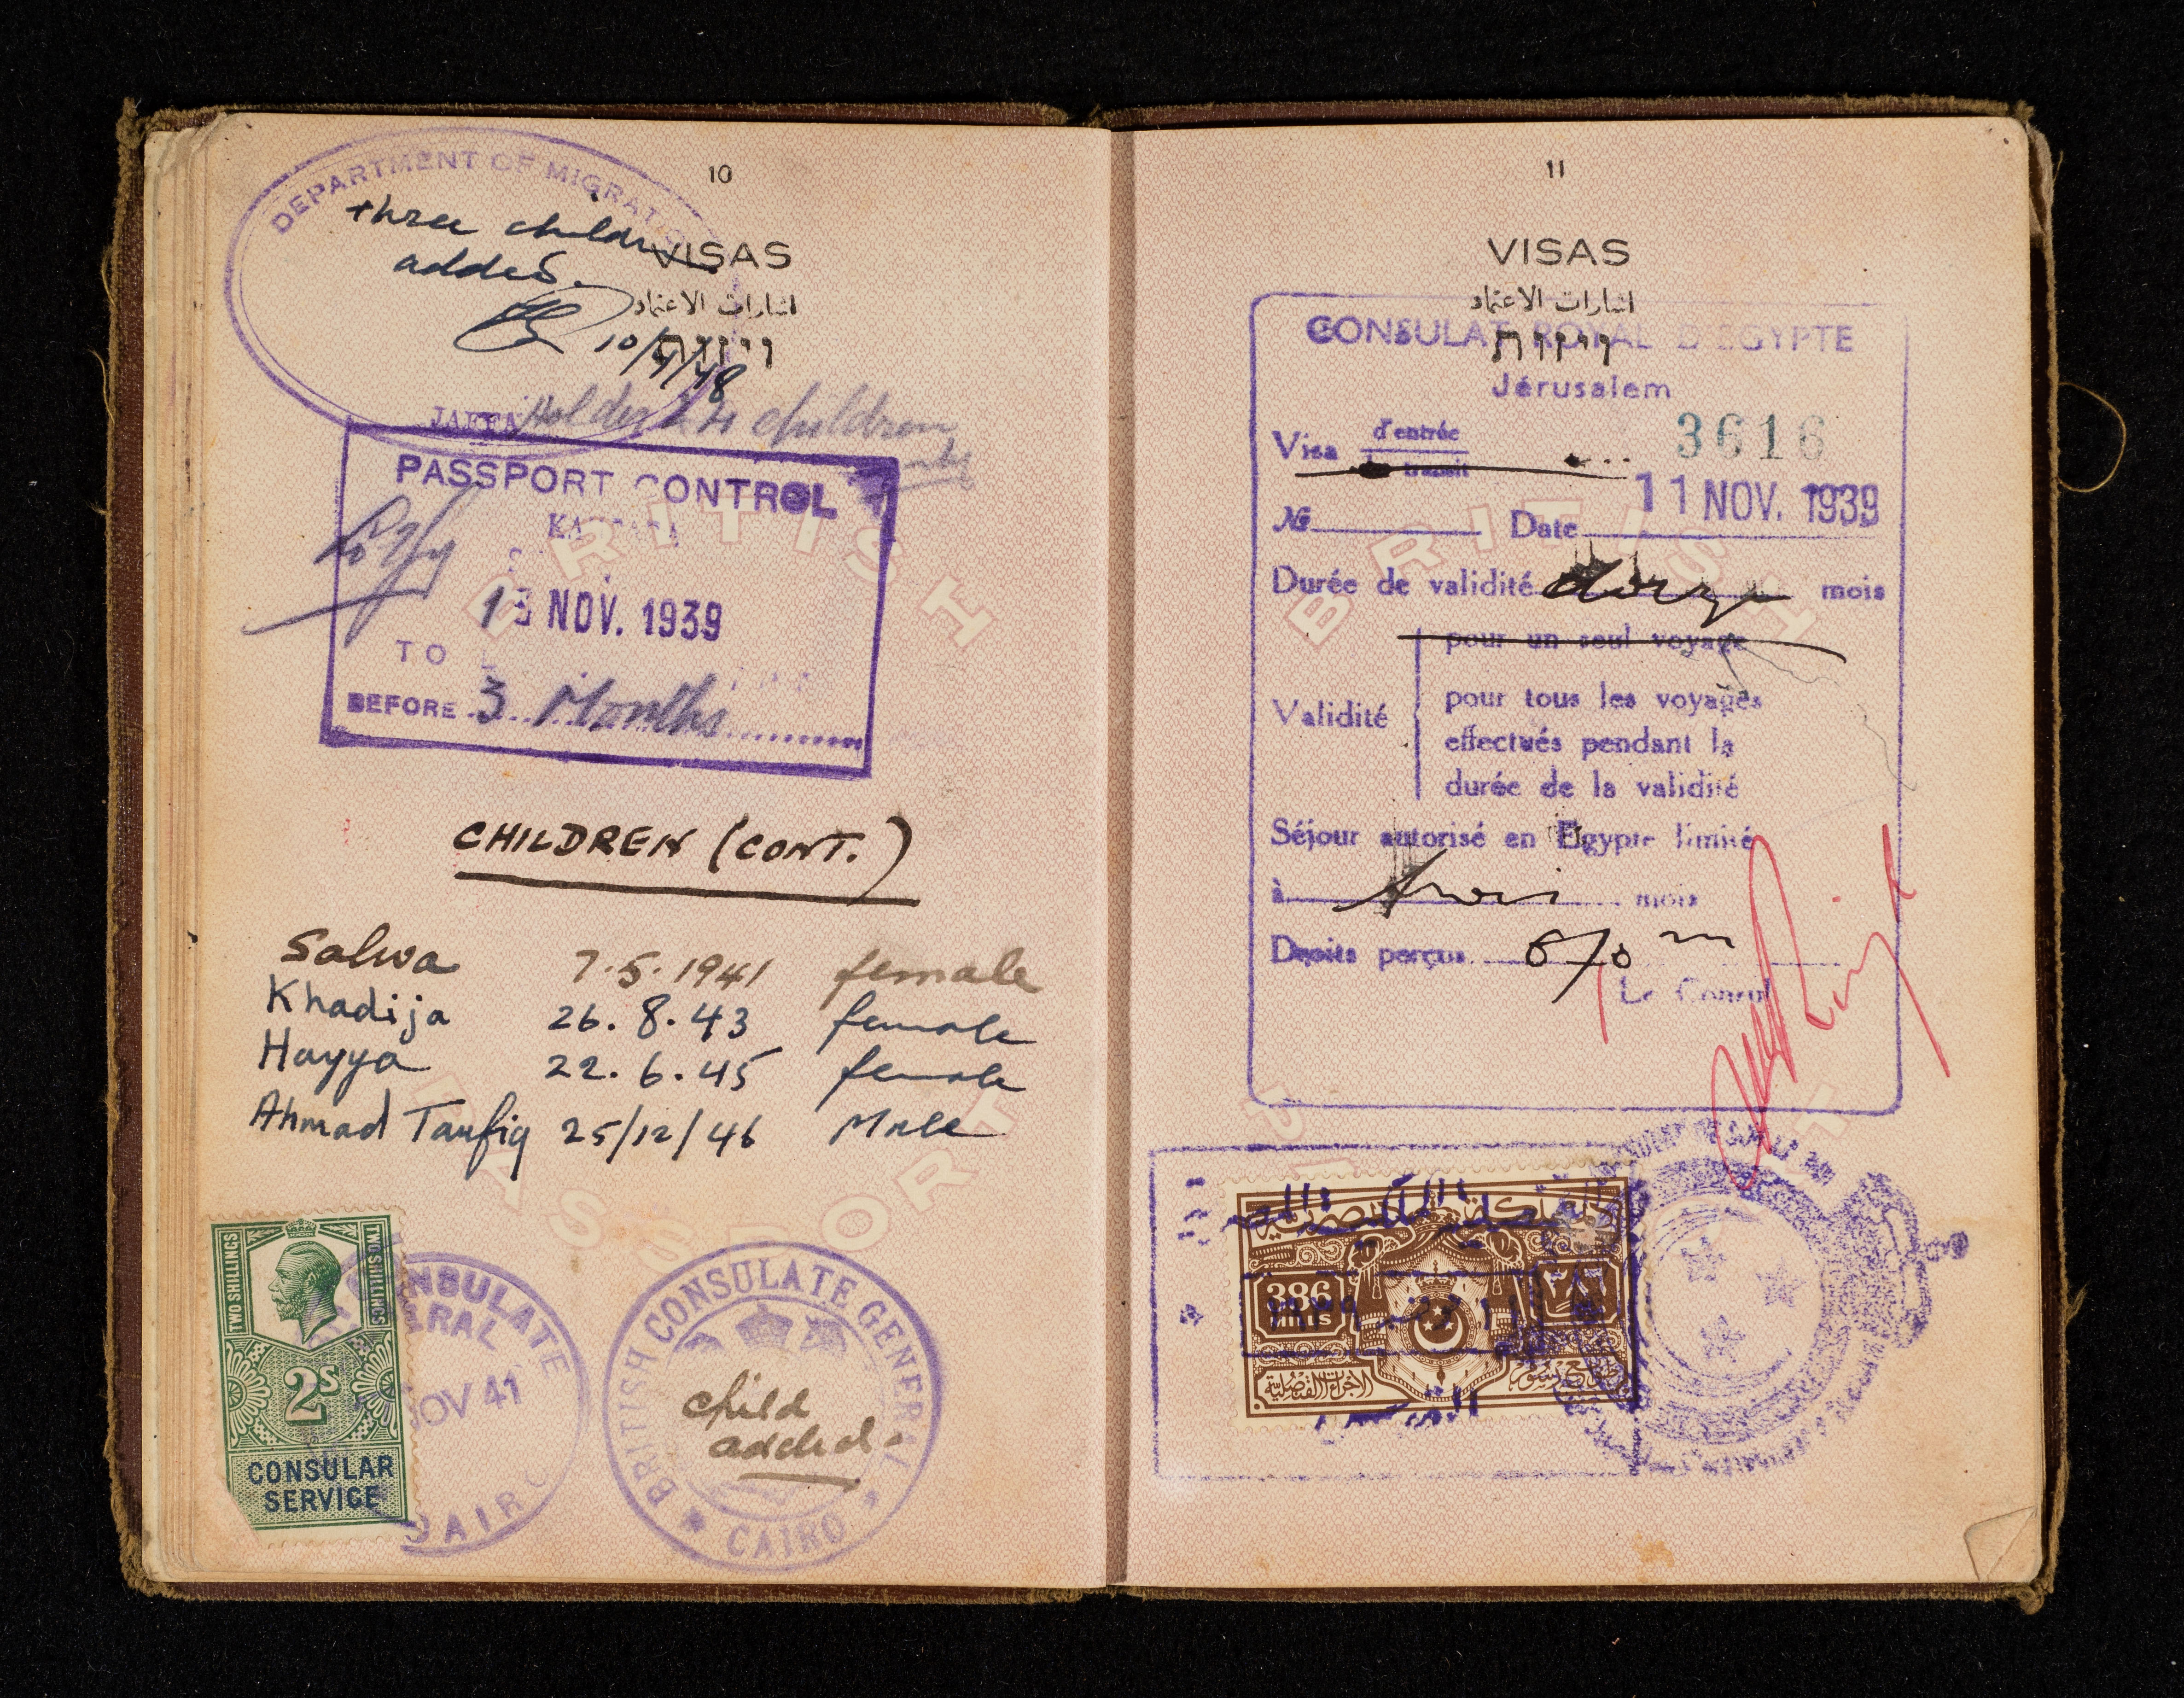 10
DEPARTMENT OF MIGRATION
three children
added.
10/4/48
JAFFA
VISAS
اشارات الاعتماد
ויזות
Holder & 4 children
PASSPORT CONTROL
13 NOV. 1939
TO
BEFORE 3 Months
CHILDREN (CONT.)
Salwa 7.5.1941 female
Khadija 26.8.43 female
Hayya 22.6.45 female
Ahmad Taufiq 25/12/46 Male
TWO SHILLINGS
TWO SHILLINGS
2S
CONSULAR
SERVICE
CONSULATE
NOV 41
CAIRO
BRITISH CONSULATE GENERAL
CAIRO
child
added.
BRITISH
PASSPORT
11
VISAS
اشارات الاعتماد
ויזות
CONSULAT ROYAL D'EGYPTE
Jérusalem
Visa d'entrée
transit
3616
No Date 11 NOV. 1939
Durée de validité mois
Validité
pour un seul voyage
pour tous les voyages
effectués pendant la
durée de la validité
Séjour autorisé en Egypte limité
à trois mois
Droits perçus
Le Consul
BRITISH
المملكة المصرية
386
MILLS
٣٨٦